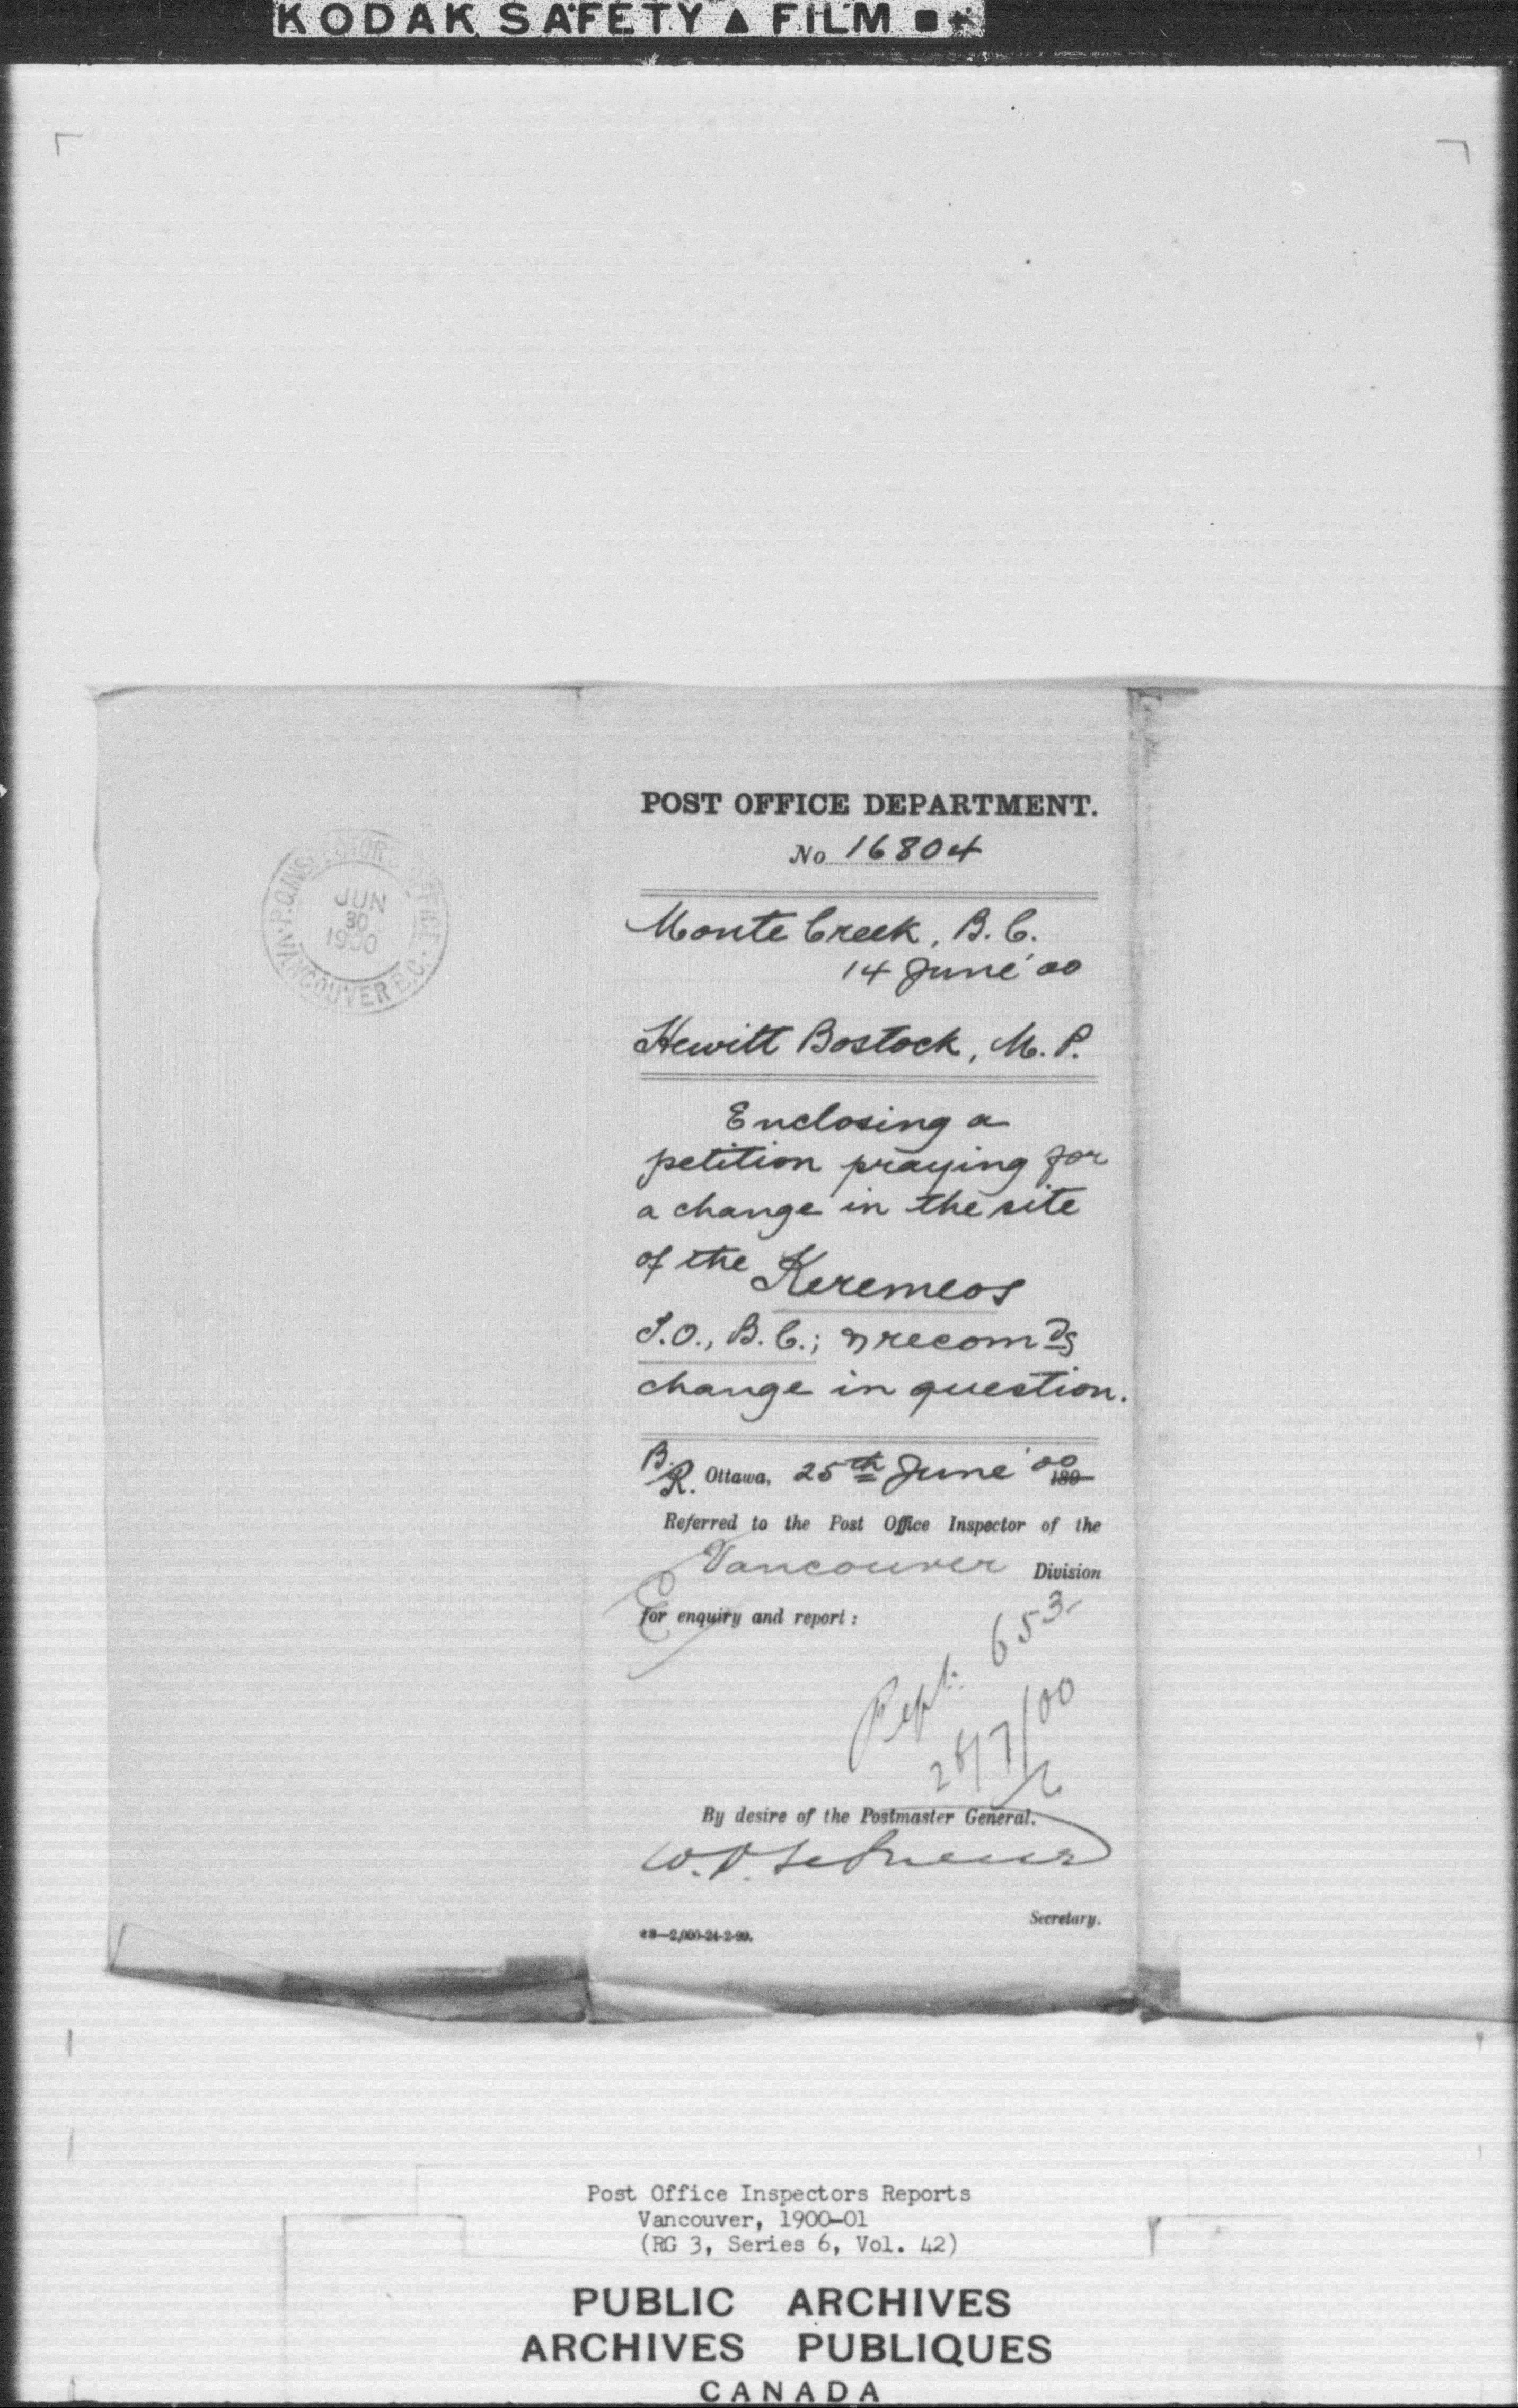 KODAK SAFETY ▲ FILM
P.O. INSPECTOR'S OFFICE
JUN
30
1900
VANCOUVER B.C.
POST OFFICE DEPARTMENT.
No 16804
Monte Creek, B.C.
14 June '00
Hewitt Bostock, M.P.
Enclosing a
petition praying for
a change in the site
of the Keremeos
P.O., B.C.; & recomds
change in question.
B.R. Ottawa, 25th June '00 189
Referred to the Post Office Inspector of the
Vancouver Division
for enquiry and report:
Rept. 653
28/7/00
By desire of the Postmaster General.
W.D. LeSueur
Secretary.
28—2,000-24-2-99.
Post Office Inspectors Reports
Vancouver, 1900-01
(RG 3, Series 6, Vol. 42)
PUBLIC ARCHIVES
ARCHIVES PUBLIQUES
CANADA